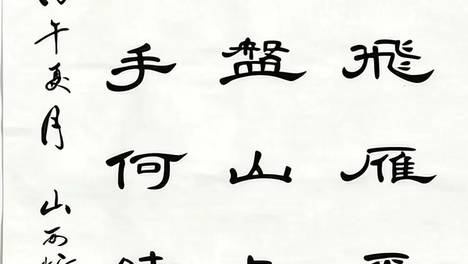 飛雁
盤山
手何
午夏月 山西